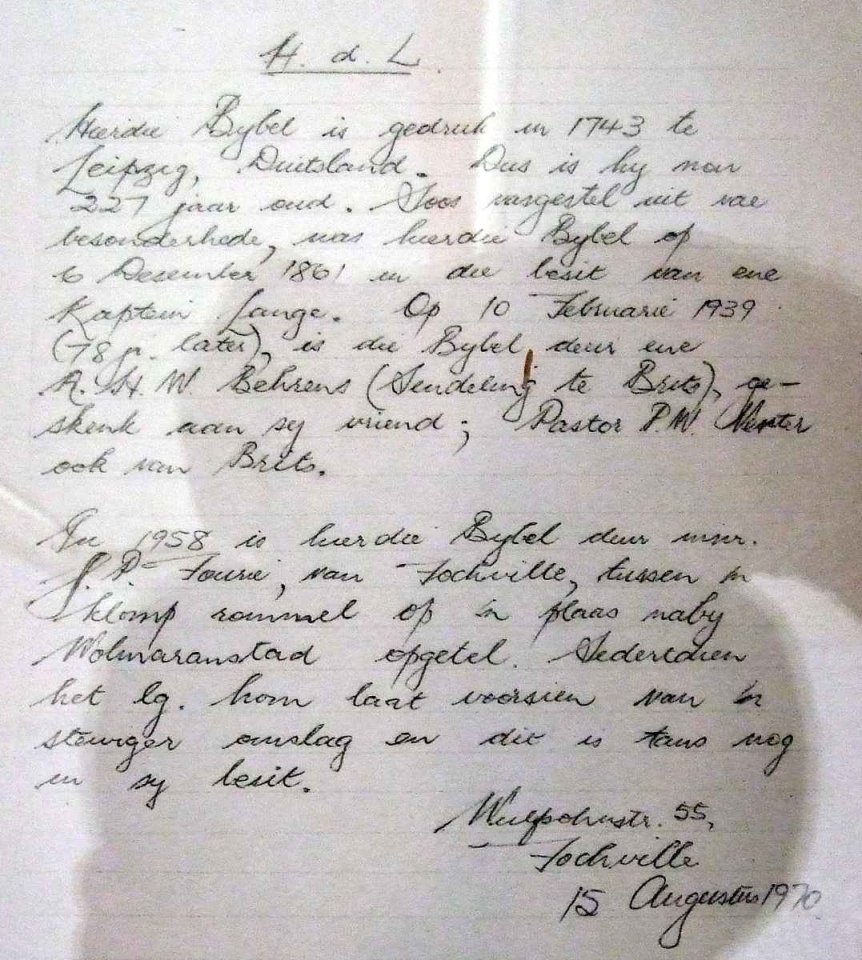 H. d. L.
Hierdie Bybel is gedruk in 1743 te
Leipzig, Duitsland. Dus is hy nou
227 jaar oud. Soos vasgestel uit vae
besonderhede, was hierdie Bybel op
6 Desember 1861 in die besit van ene
Kaptein Lange. Op 10 Februarie 1939
(78 jr. later), is die Bybel deur ene
A. H. W. Behrens (Sendeling te Brits), ge-
skenk aan sy vriend; Pastor P.W. Venter
ook van Brits.
In 1958 is hierdie Bybel deur mnr.
J. P. Fourie, van Fochville, tussen 'n
klomp rommel op 'n plaas naby
Wolmaranstad opgetel. Sedertdien
het lg. hom laat voorsien van 'n
stewiger omslag en dit is tans nog
in sy besit.
55,
Fochville
15 Augustus 1970.